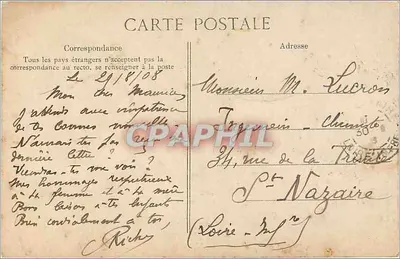 CARTE POSTALE
Correspondance
Tous les pays étrangers n'acceptent pas la
correspondance au recto, se renseigner à la poste
Adresse
Le 29/8/08
Mon cher Maurice
J'attends avec impatience
de tes bonnes nouvelles
N'aurais tu pas reçu ma
dernière lettre ?
Viendras-tu me voir ?
Mes hommages respectueux
à ta femme et à ta mère
Bons baisers à tes enfants
Bien cordialement à toi,
Riche
Monsieur M. Lucron
Ingénieur-Chimiste
34, rue de la
St Nazaire
(Loire-Infre)
CPAPHIL